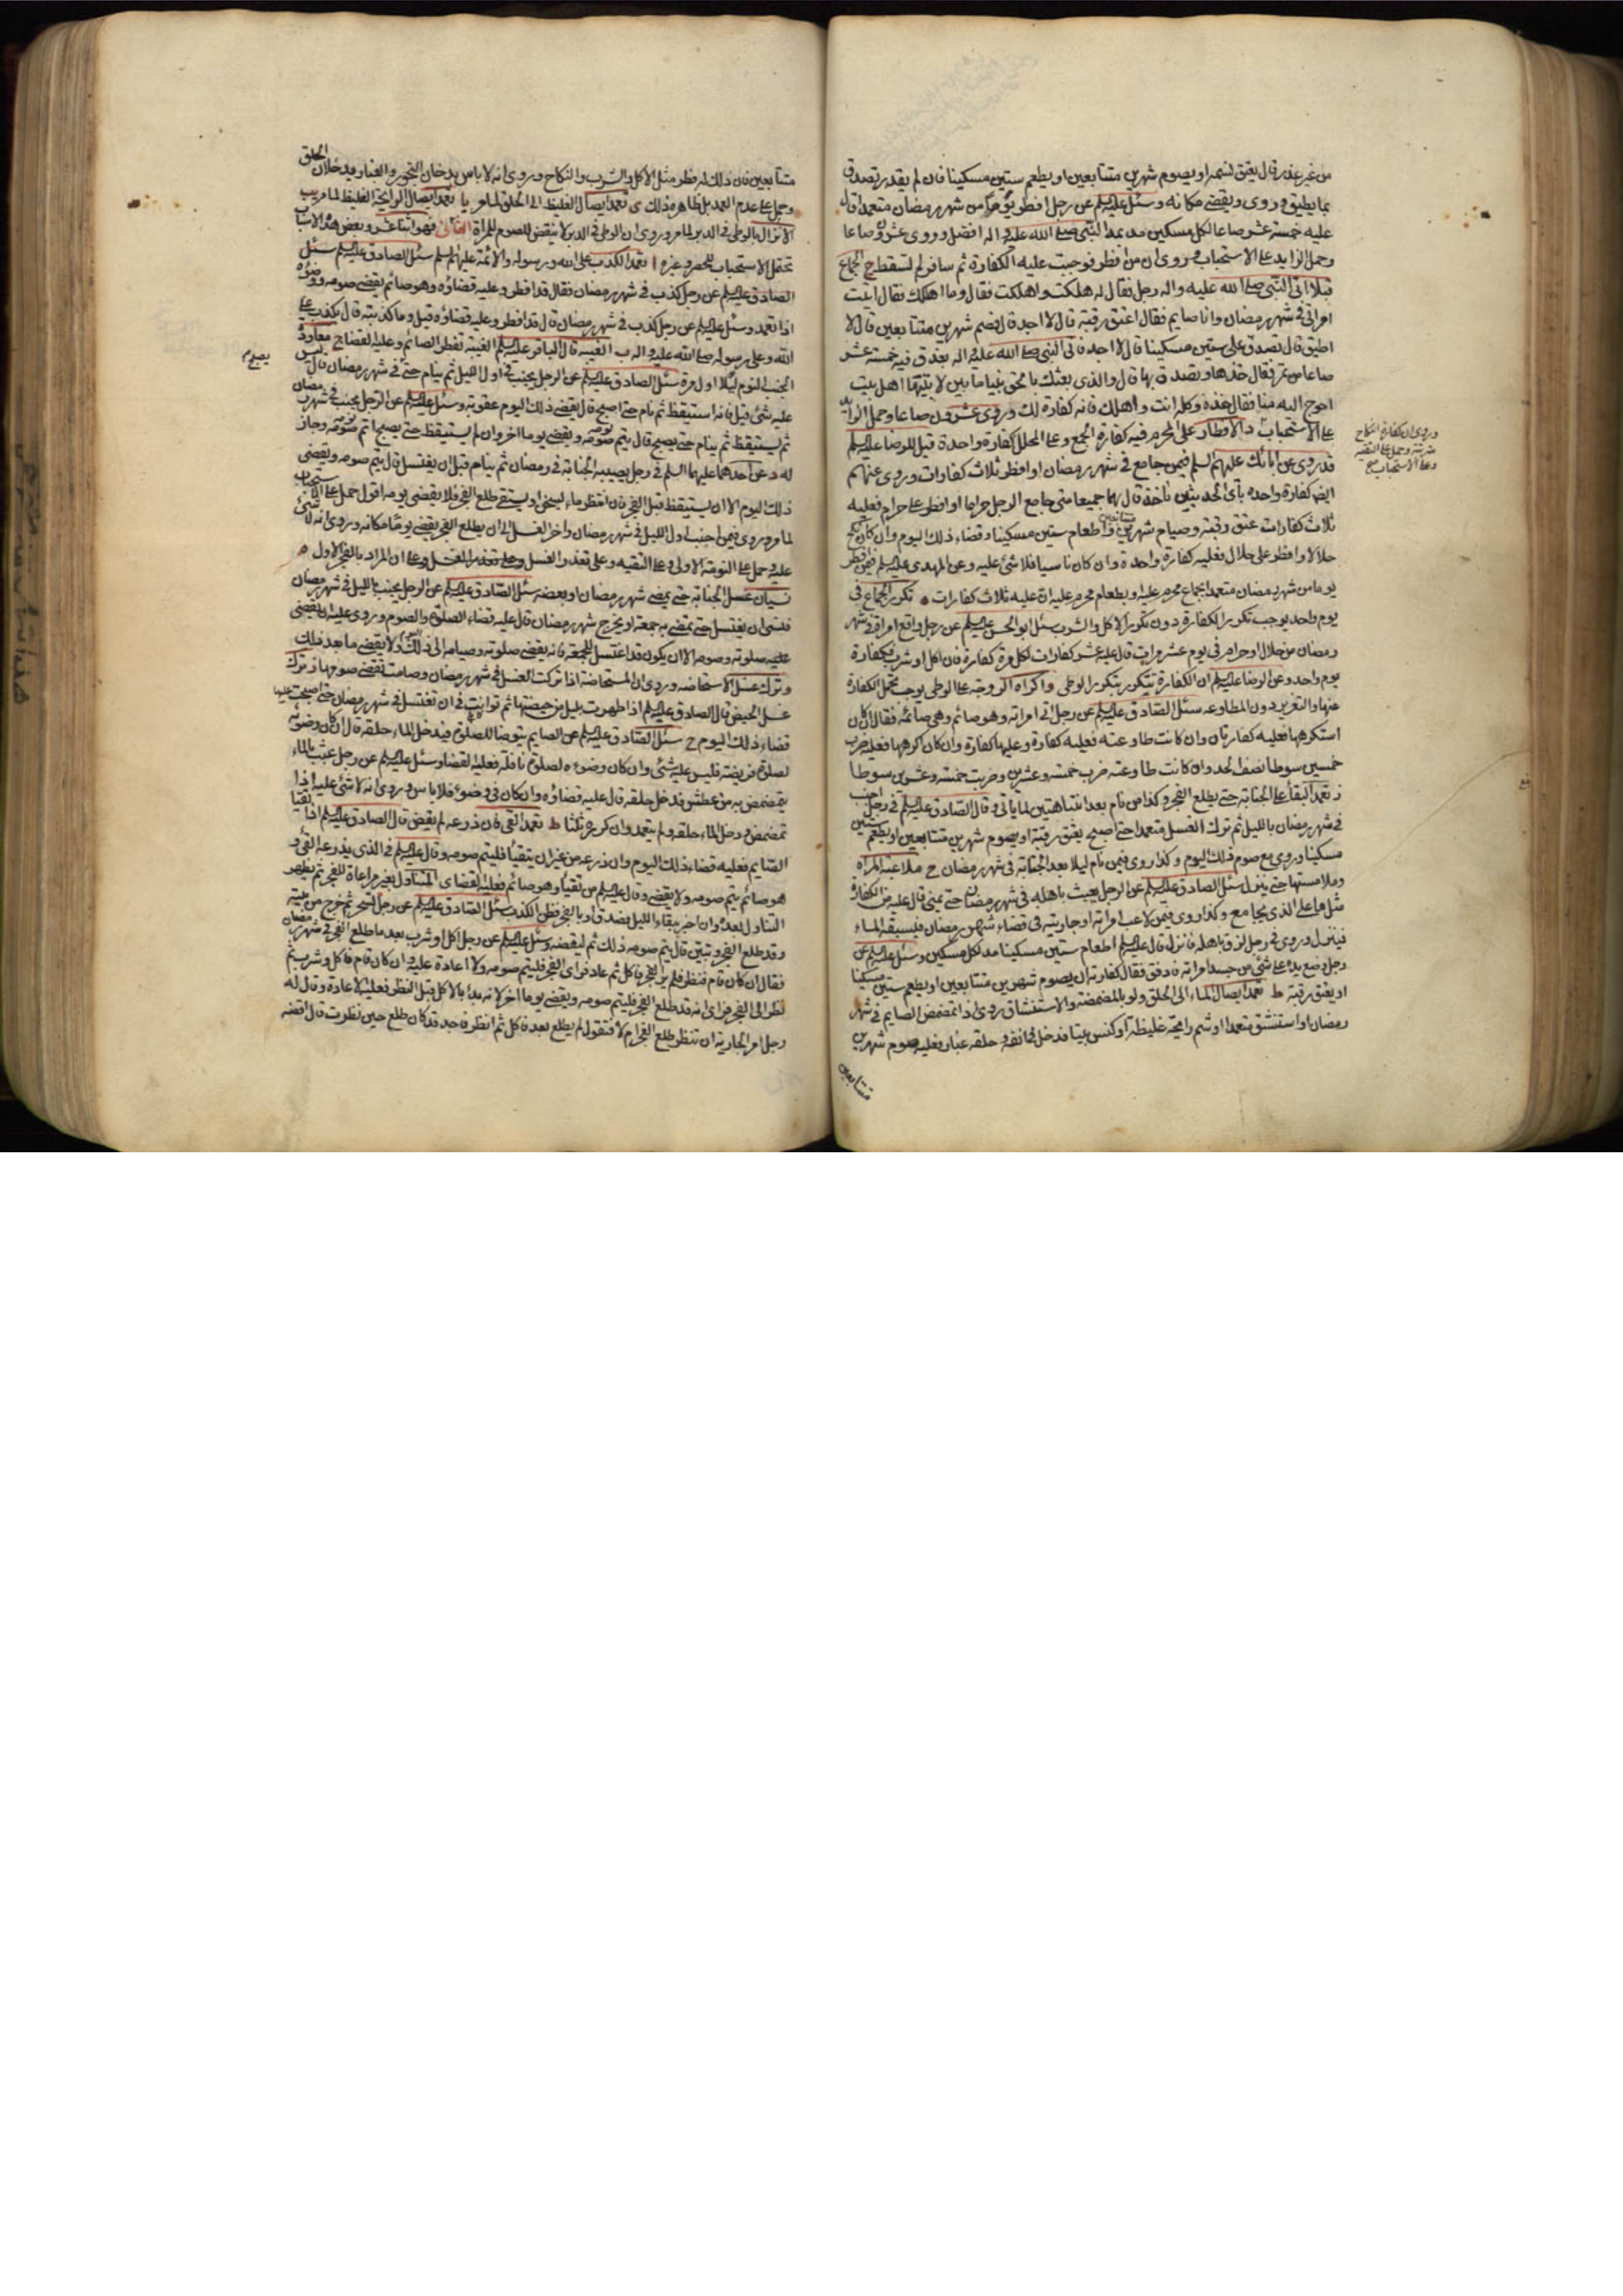 من غير عذر قال يعتق نسمة او يصوم شهرين متتابعين او يطعم ستين مسكينا فان لم يقدر تصدق
بما يطيق وروى ويقضي مكانه وسئل عليه السلم عن رجل افطر يوما من شهر رمضان متعمدا قال
عليه خمسة عشر صاعا لكل مسكين مد بمد النبي صلى الله عليه واله افضل وروى عشرون صاعا
وحمل الزايد على الاستحباب وروى ان من افطر فوجبت عليه الكفارة ثم سافر لم تسقط ج الجماع
قبلا اتى النبي صلى الله عليه واله رجل فقال له هلكت واهلكت فقال وما اهلكك فقال اتيت
امراتي في شهر رمضان وانا صايم فقال اعتق رقبة قال لا اجد قال فصم شهرين متتابعين قال لا
اطيق قال تصدق على ستين مسكينا قال لا اجد فاتى النبي صلى الله عليه واله بعذق فيه خمسة عشر
صاعا من تمر فقال خذها وتصدق بها قال والذي بعثك بالحق نبيا ما بين لابتيها اهل بيت
احوج اليه منا فقال خذه وكله انت واهلك فانه كفارة لك وروى عشرون صاعا وحمل الزايد
على الاستحباب د الافطار على المحرم فيه كفارة الجمع وعلى المحلل كفارة واحدة قيل للرضا عليه السلم
قد روى عن ابائك عليهم السلم فيمن جامع في شهر رمضان او افطر ثلاث كفارات وروى عنهم
ايضا كفارة واحده بأي الحديثين ناخذ قال بهما جميعا متى جامع الرجل حراما او افطر على حرام فعليه
ثلاث كفارات عتق رقبة وصيام شهرين متتابعين واطعام ستين مسكينا وقضاء ذلك اليوم وان كان نكح
حلالا وافطر على حلال فعليه كفارة واحدة وان كان ناسيا فلا شئ عليه وعن المهدى عليه السلم فيمن افطر
يوما من شهر رمضان متعمدا بجماع محرم عليه او بطعام محرم عليه ان عليه ثلاث كفارات ه تكرر الجماع في
يوم واحد يوجب تكرر الكفارة دون تكرر الاكل والشرب سئل ابو الحسن عليه السلم عن رجل واقع امراة في شهر
رمضان من حلال او حرام في يوم عشر مرات قال عليه عشر كفارات لكل مرة كفارة فان اكل او شرب فكفارة
يوم واحد وعن الرضا عليه السلم ان الكفارة تتكرر بتكرر الوطى و اكراه الزوجة على الوطى يوجب تحمل الكفارة
عنها والتعزير دون المطاوعه سئل الصادق عليه السلم عن رجل اتى امراته وهو صائم وهي صائمة فقال ان كان
استكرهها فعليه كفارتان وان كانت طاوعته فعليه كفارة وعليها كفارة وان كان اكرهها فعليه ضرب
خمسين سوطا نصف الحد وان كانت طاوعته ضرب خمسة وعشرين وضربت خمسة وعشرين سوطا
ز تعمد البقاء على الجنابة حتى يطلع الفجر وكذا من نام بعد انتباهتين لما ياتي وقال الصادق عليه السلم في رجل اجنب
في شهر رمضان بالليل ثم ترك الغسل متعمدا حتى اصبح يعتق رقبة او يصوم شهرين متتابعين او يطعم ستين
مسكينا وروى مع صوم ذلك اليوم وكذا روى فيمن نام ليلا بعد الجنابة في شهر رمضان ح ملاعبة المراة
وملامستها حتى ينزل سئل الصادق عليه السلم عن الرجل يعبث باهله في شهر رمضان حتى يمنى قال عليه من الكفارة
مثل ما على الذي يجامع وكذا روى فيمن لاعب امراته او جاريته في قضاء شهر رمضان فيسبقه الماء
فينزل وروى في رجل لزق باهله فانزل قال عليه السلم اطعام ستين مسكينا مد لكل مسكين وسئل عليه السلم عن
رجل وضع يده على شئ من جسد امراته فادفق فقال كفارته ان يصوم شهرين متتابعين او يطعم ستين مسكينا
او يعتق رقبة ط تعمد ايصال الماء الى الحلق ولو بالمضمضة والاستنشاق روى اذا تمضمض الصايم في شهر
رمضان او استنشق متعمدا او شم رايحة غليظة او كنس بيتا فدخل في انفه وحلقه غبار فعليه صوم شهرين
متتابعين
وروى ان كفارة النكاح
مرتبة وحمل على التقية
وعلى الاستحباب
متتابعين فان ذلك له فطر مثل الاكل والشرب والنكاح وروى انه لا باس بدخان البخور والغبار يدخلان الحلق
وحمل على عدم العمد بل ظاهره ذلك ى تعمد ايصال الغليظ الى الحلق لما مر يا تعمد ايصال الرايحة الغليظة لما مر يب
الانزال بالوطى في الدبر لما مر وروى ان الوطى في الدبر لا ينقض الصوم للمراة الثاني فهو اثنا عشر وبعض هذه الاسباب
تحتمل الاستحباب للحصر وغيره ا تعمد الكذب على الله ورسوله والائمة عليهم السلم سئل الصادق عليه السلم سئل
الصادق عليه السلم عن رجل كذب في شهر رمضان فقال قد افطر وعليه قضاؤه وهو صائم يقضي صومه ووضوءه
اذا تعمد وسئل عليه السلم عن رجل كذب في شهر رمضان قال قد افطر وعليه قضاؤه قيل وما كذبته قال يكذب على
الله وعلى رسوله صلى الله عليه واله ب الغيبة قال الباقر عليه السلم الغيبة تفطر الصائم وعليه القضا ج معاودة
الجنب النوم ليلا اول مرة سئل الصادق عليه السلم عن الرجل يجنب في اول الليل ثم ينام حتى في شهر رمضان قال ليس
عليه شئ قيل فانه استيقظ ثم نام حتى اصبح قال يقضي ذلك اليوم عقوبة وسئل عليه السلم عن الرجل يجنب في شهر رمضان
ثم يستيقظ ثم ينام حتى يصبح قال يتم صومه ويقضي يوما اخر وان لم يستيقظ حتى يصبح اتم صومه وجاز
له د عن احدهما عليهما السلم في رجل يصيبه الجنابة في رمضان ثم ينام قبل ان يغتسل قال يتم صومه ويقضي
ذلك اليوم الا ان يستيقظ قبل الفجر فان انتظر ماء ليسخن او يستقى طلع الفجر فلا يقضي يومه اقول حمل على الاستحباب
لما مر وروى فيمن اجنب اول الليل في شهر رمضان واخر الغسل الى ان يطلع الفجر يقضي يوما مكانه وروى انه لا شئ
عليه وحمل على النومة الاولى وعلى التقيه وعلى تعذر الغسل وعلى تعذر الغسل وعلى ان المراد بالفجر الاول ه
نسيان غسل الجنابة حتى يمضي شهر رمضان او بعضه سئل الصادق عليه السلم عن الرجل يجنب بالليل في شهر رمضان
فنسى ان يغتسل حتى تمضي به جمعة او يخرج شهر رمضان قال عليه قضاء الصلوة والصوم وروى عليه ان يقضي
صلوته وصومه الا ان يكون قد اغتسل للجمعة فانه يقضي صلوته وصيامه الى ذلك ولا يقضي ما بعد ذلك
و ترك غسل الاستحاضه وروى ان المستحاضة اذا تركت الغسل في شهر رمضان وصامت تقضي صومها ز ترك
غسل الحيض قال الصادق عليه السلم اذا طهرت بليل من حيضتها ثم توانت في ان تغتسل في شهر رمضان حتى اصبحت عليها
قضاء ذلك اليوم ح سئل الصادق عليه السلم عن الصايم يتوضا للصلوة فيدخل الماء حلقه قال ان كان وضوئه
لصلوة فريضة فليس عليه شئ وان كان وضوءه لصلوة نافلة فعليه القضا وسئل عليه السلم عن رجل عبث بالماء
يتمضمض به من عطش فدخل حلقه قال عليه قضاؤه وان كان في وضوء فلا باس وروى انه لا شئ عليه اذا
تمضمض ودخل الماء حلقه ولم يتعمد وان كرره ثلثا ط تعمد القئ فان ذرعه لم يقض قال الصادق عليه السلم اذا تقيا
الصايم فعليه قضاء ذلك اليوم وان ذرعه من غير ان يتقيأ فليتم صومه وقال عليه السلم في الذي يذرعه القئ و
هو صائم يتم صومه ولا يقضي وقال عليه السلم من تقيأ وهو صائم فعليه القضا ى المتناول بغير مراعاة للفجر ثم يظهر
التناول بعده وان اخر ببقاء الليل بصدق او بالفجر فظن الكذب سئل الصادق عليه السلم عن رجل تسحر ثم خرج من بيته
وقد طلع الفجر وتبين قال يتم صومه ذلك ثم ليقضه وسئل عليه السلم عن رجل اكل او شرب بعد ما طلع الفجر في شهر رمضان
فقال ان كان قام فنظر فلم ير الفجر فاكل ثم عاد فراى الفجر فليتم صومه ولا اعادة عليه وان كان قام فاكل وشرب ثم
نظر الى الفجر فراى انه قد طلع الفجر فليتم صومه ويقضي يوما اخر لانه بدأ بالاكل قبل النظر فعليه الاعادة وقال له
رجل امر الجارية ان تنظر طلع الفجر ام لا فتقول لم يطلع بعد فاكل ثم انظر فاجد قد كان طلع حين نظرت قال اقضه